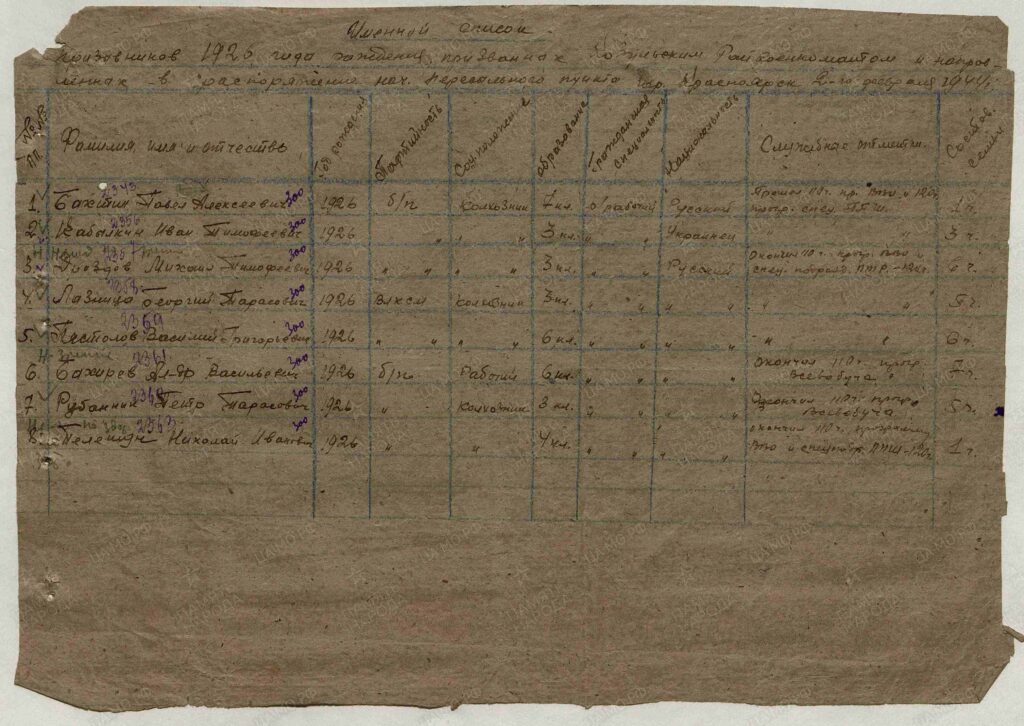 Именной список
призовников 1926 года рождения, призванных Козульским Райвоенкоматом и направ-
ленных в распоряжение нач. пересыльного пункта гор. Красноярск 2го февраля 1944 г.
№№ п.п. Фамилия, имя и отчество Год рождения Партийность Соц.положение образование Гражданская специальность Национальность Служебные отметки Состав. семьи
2343 300
1. Бахитин Павел Алексеевич 1926 б/п колхозник 7 кл. рабочий Русский 110 ч. пр. Вто и 120 ч. прогр. спец. 1 ч.
2356 300
2. Кабалкин Иван Тимофеевич 1926 " " 3 кл. " " Украинец " " 3 ч.
2357
3. Гнездов Михаил Тимофеевич 300 1926 " " 3 кл. " " Русский окончил 110 ч. прогр. Вто и спец. подразд. ПТР-120ч. 6 ч.
2353
4. Лазница Георгий Тарасович 300 1926 влксм колхозник 3 кл. " " " " " 5 ч.
2369
5. Пестолов Василий Григорьевич 300 1926 " " 6 кл. " " " " " 6 ч.
2361
6. Бахирев Ал-др Васильевич 300 1926 б/п Рабочий 6 кл. " " " окончил 110 ч. прогр. Всевобуча 7 ч.
7. Рубанник Петр Тарасович 300 1926 " колхозник 3 кл. " " " окончил 110 ч. прогр. Всевобуча 5 ч.
2363
8. Пелешин Николай Иванович 1926 " " 4 кл. " " " окончил 110 ч. программы Вто и спецподр. ППШ-120ч 1 ч.